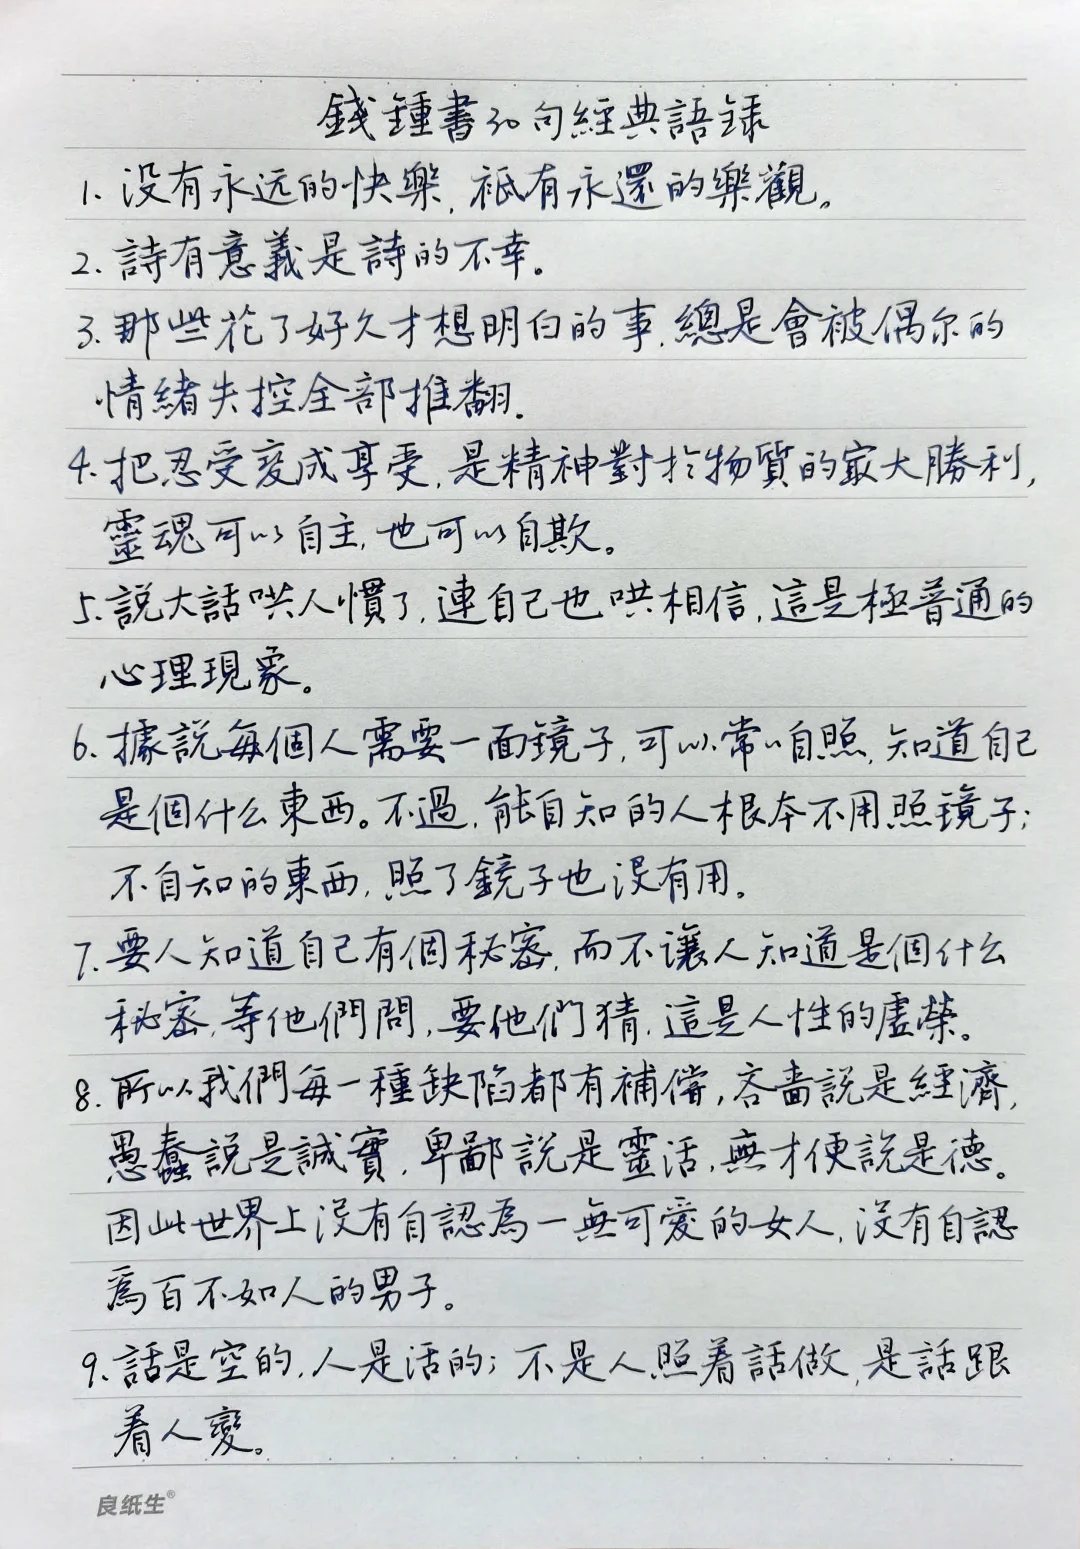 錢鍾書30句經典語録
1. 没有永远的快樂,祗有永還的樂觀。
2. 詩有意義是詩的不幸。
3. 那些花了好久才想明白的事,總是會被偶尔的
情緒失控全部推翻.
4. 把忍受变成享受,是精神對於物質的最大勝利,
靈魂可以自主,也可以自欺。
5. 説大話哄人慣了,連自己也哄相信,這是極普通的
心理現象。
6. 據説每個人需要一面镜子,可以常常自照,知道自己
是個什么東西。不過,能自知的人根本不用照鏡子;
不自知的東西,照了鏡子也没有用。
7. 要人知道自己有個秘密,而不讓人知道是個什么
秘密,等他們問,要他們猜,這是人性的虚榮。
8. 所以我們每一種缺陷都有補償,吝嗇説是經濟,
愚蠢説是誠實,卑鄙説是靈活,無才便説是德。
因此世界上没有自認為一無可愛的女人,没有自認
為百不如人的男子。
9. 話是空的,人是活的;不是人照着話做,是話跟
着人變。
良纸生®